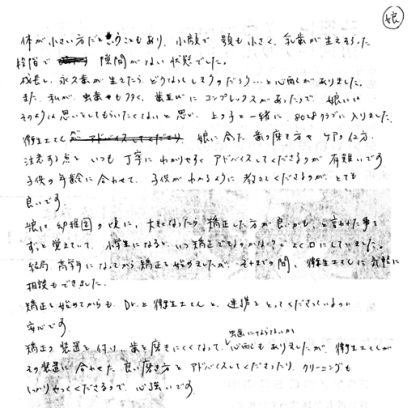 娘
体が小さい方だということもあり、小顔で顎も小さく、乳歯が生えそろった
段階で 隙間がない状態でした。
成長し、永久歯が生えたら、どうなってしまうのだろう…と心配がありました。
また、私が、虫歯も多く、歯並びにコンプレックスがあったので、娘には
そのような思いをしてもらいたくないと思い、上の子と一緒に、クラブに入りました。
衛生士さんがアドバイスしてくださり 娘に合た歯の磨き方やケアの仕方、
注意する点をいつも丁寧にわかりやすくアドバイスしてくださるのが有難いです
子供の年齢に合わせて、子供がわかるように教えてくださるのが、とても
良いです。
娘は幼稚園の頃に、大きくなったら矯正した方が良いかも、と言われた事を
ずっと覚えていて、小学生になると、いつ矯正できるのかな?とよく口にしていました。
結局、高学年になってから矯正を始めましたが、それまでの間、衛生士さんに気軽に
相談もできました。
矯正を始めてからも、Dr.と衛生士さんと、連携をとってくださっているので
安心です。
矯正の装置を付け、歯を磨きにくくなって、虫歯にならないか心配もありましたが、衛生士さんが
その装置に合わせた良い磨き方をアドバイスしてくださったり、クリーニングも
しっかりやってくださるので、心強いです。